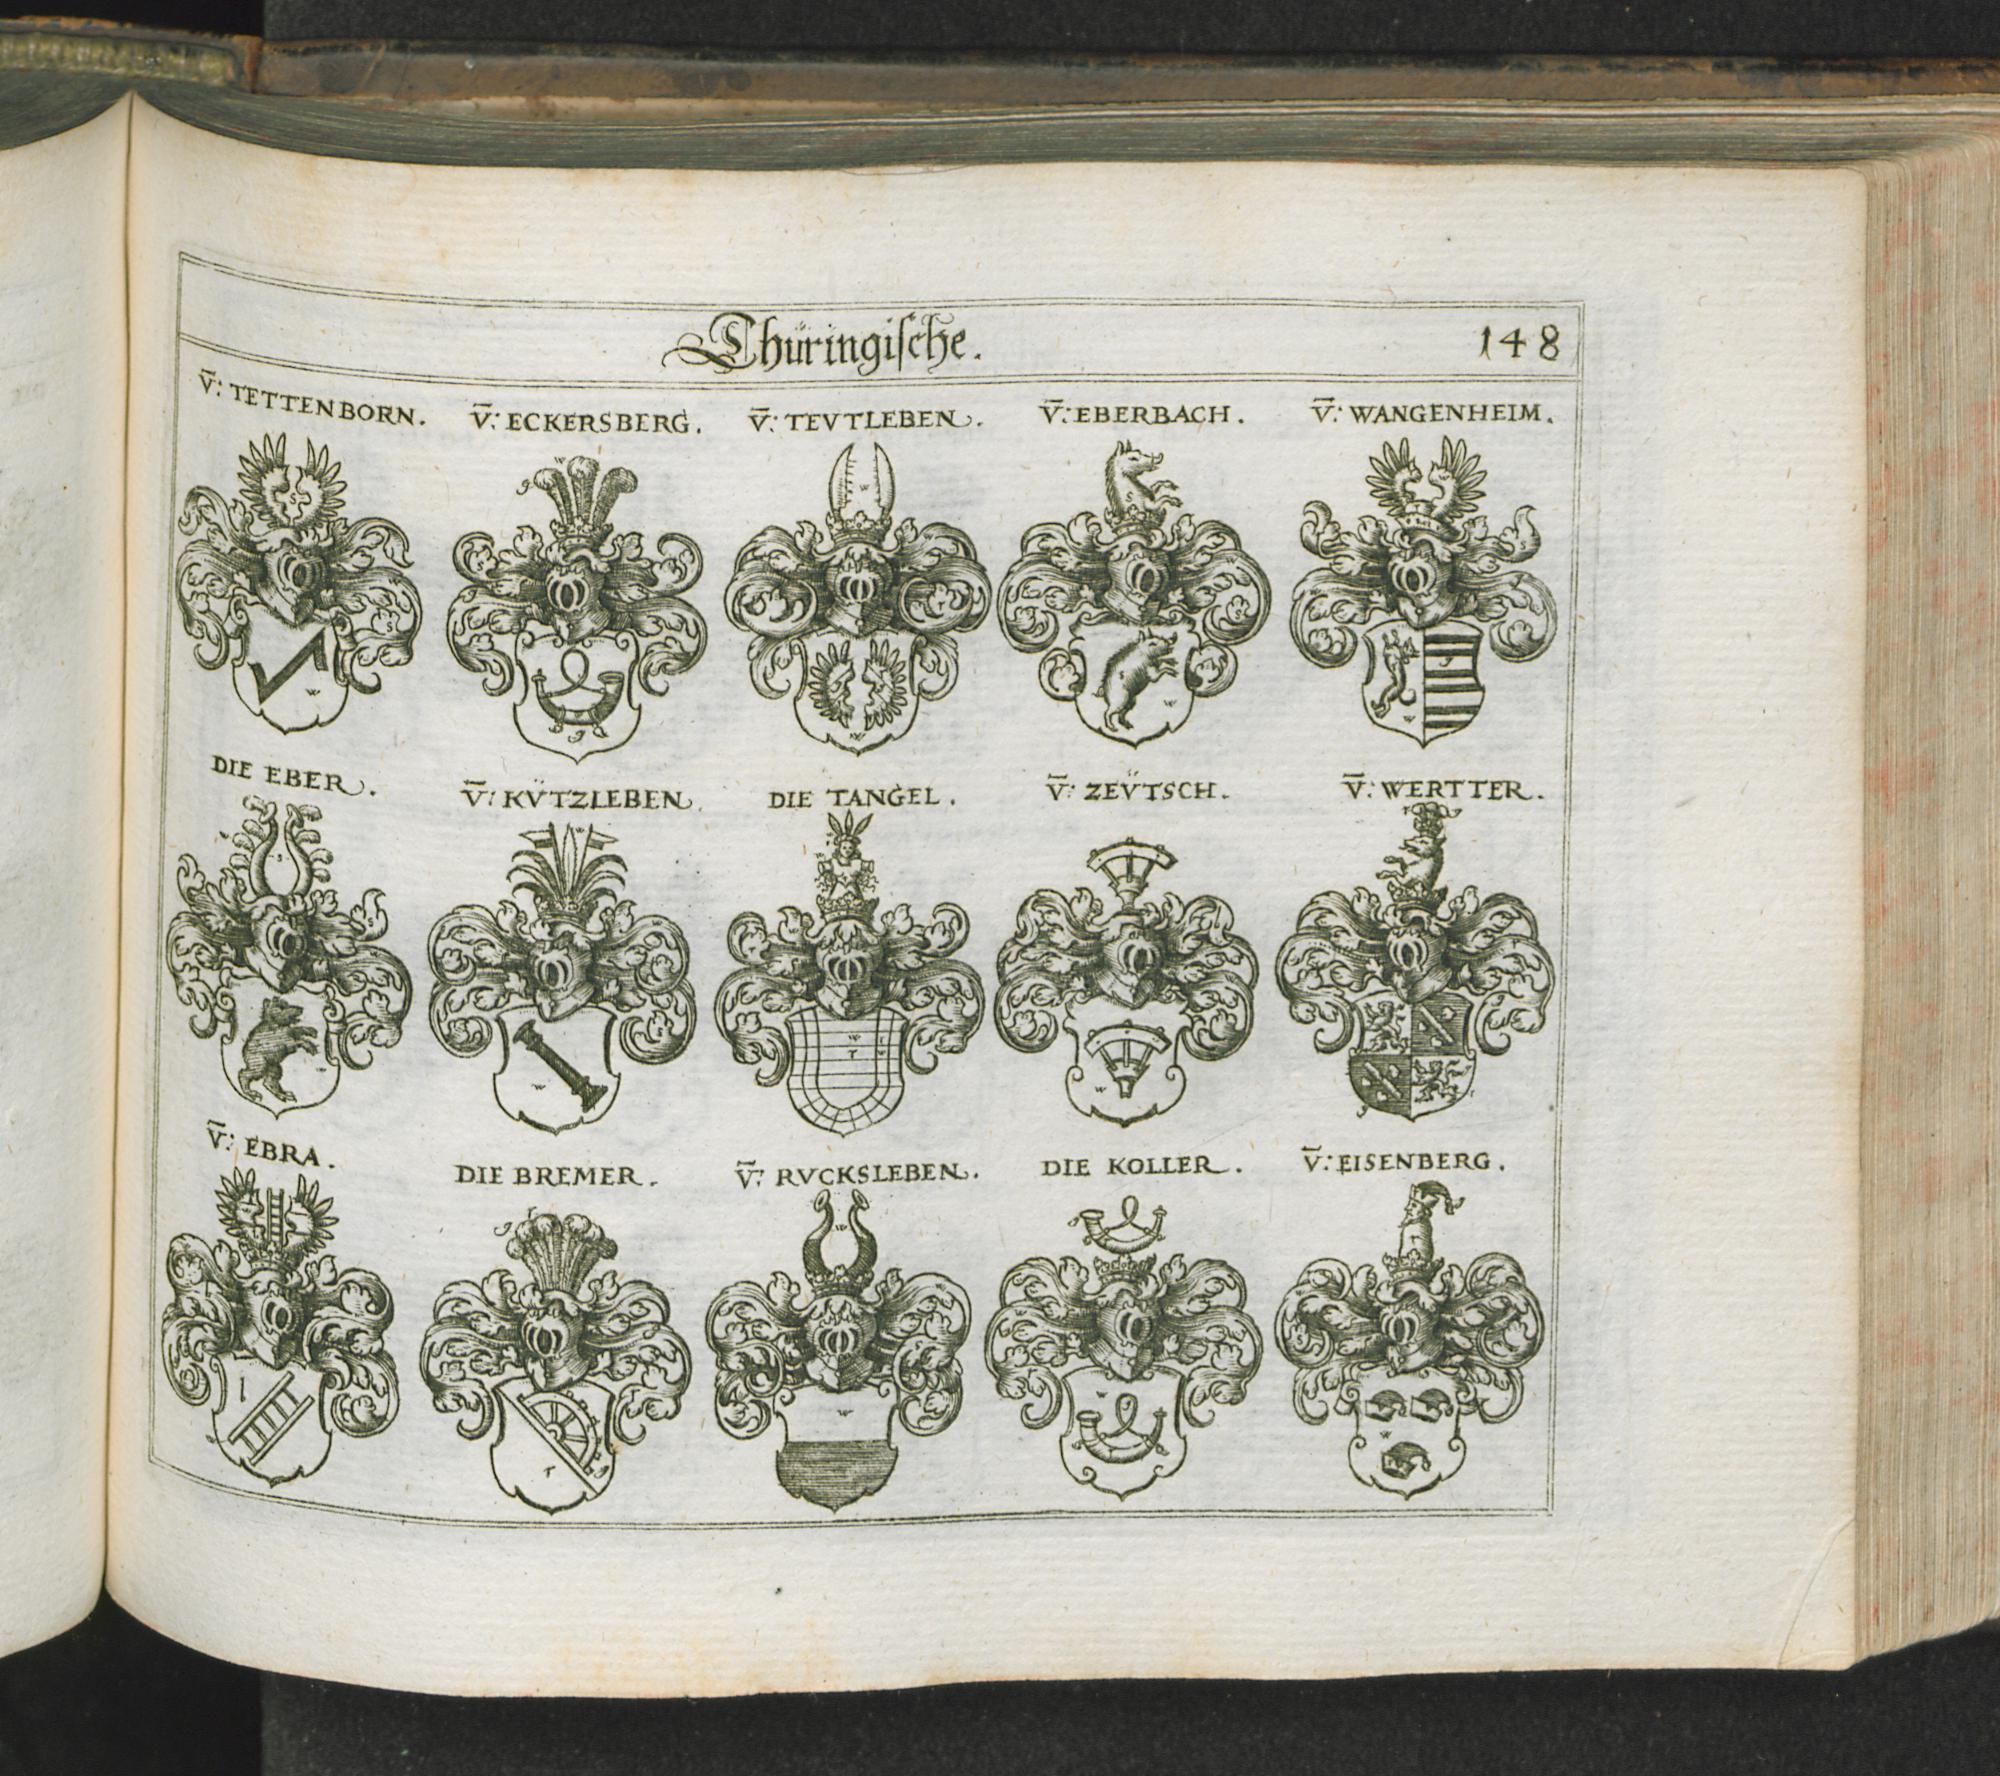 Thüringische.
148
V̄: TETTENBORN. V̄: ECKERSBERG. V̄: TEVTLEBEN. V̄: EBERBACH. V̄: WANGENHEIM.
DIE EBER. V̄: KÜTZLEBEN. DIE TANGEL. V̄: ZEÜTSCH. V̄: WERTTER.
V̄: EBRA. DIE BREMER. V̄: RVCKSLEBEN. DIE KOLLER. V̄: EISENBERG.